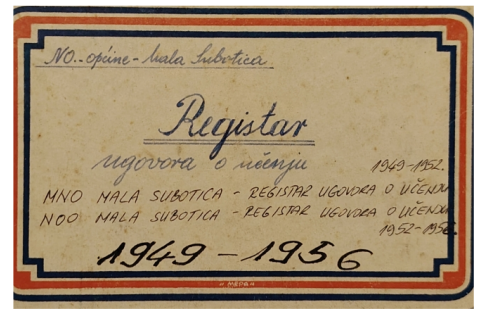 NO.-općine-Mala Subotica
Registar
ugovora o učenju
1949-1952.
MNO MALA SUBOTICA - REGISTAR UGOVORA O UČENJU
NOO MALA SUBOTICA - REGISTAR UGOVORA O UČENJU
1952-1956.
1949-1956